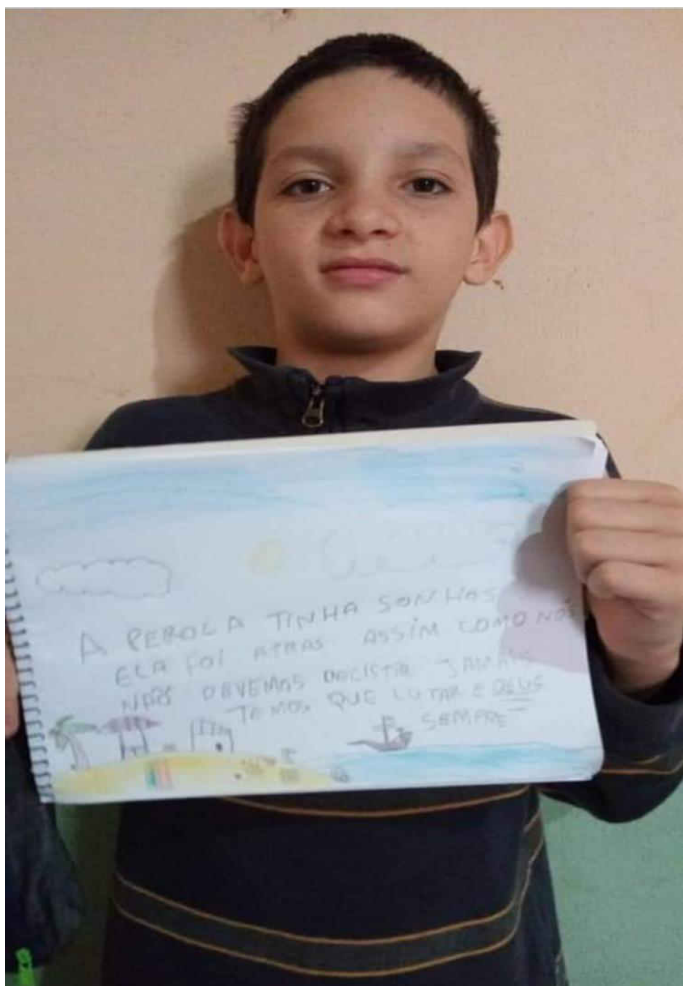 A PEROLA TINHA SONHOS
ELA FOI ATRAS ASSIM COMO NÓS
NÓS DEVEMOS DECISTIR JAMAIS
TEMOS QUE LUTAR E DEUS
SEMPRE